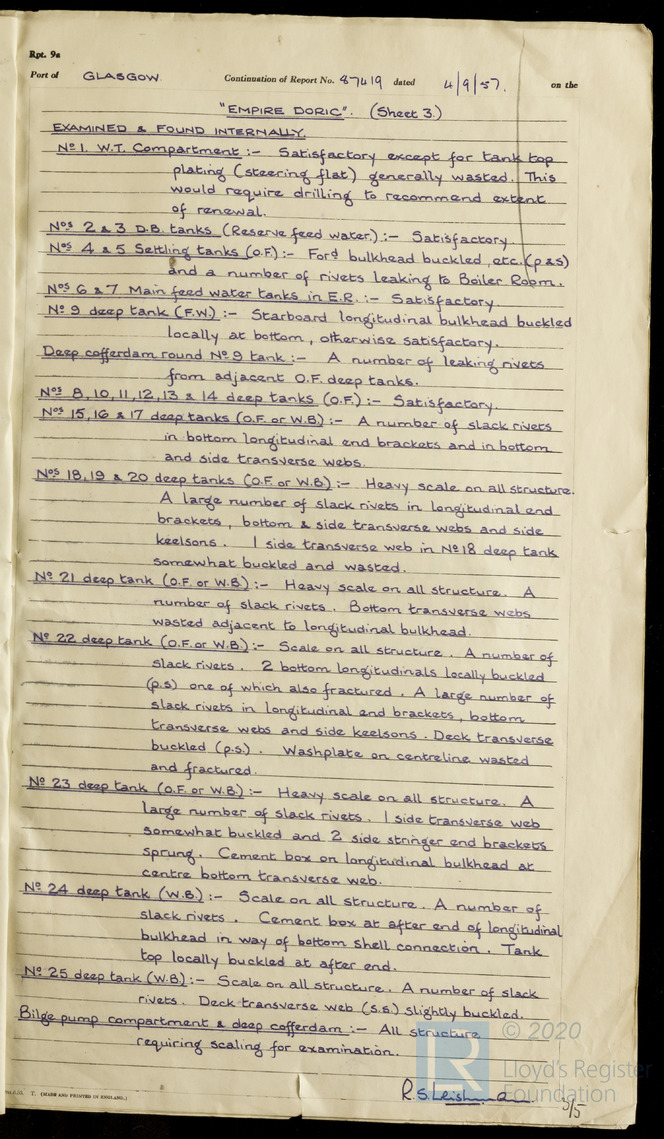 Rpt. 9a
Port of GLASGOW Continuation of Report No. 87419 dated 4/9/57. on the
"EMPIRE DORIC". (Sheet 3.)
EXAMINED & FOUND INTERNALLY.
No 1. W.T. Compartment :- Satisfactory except for tank top
plating (steering flat) generally wasted. This
would require drilling to recommend extent
of renewal.
Nos 2 & 3 D.B. tanks (Reserve feed water.) :- Satisfactory.
Nos 4 & 5 Settling tanks (O.F.) :- Ford bulkhead buckled, etc. (p & s)
and a number of rivets leaking to Boiler Room.
Nos 6 & 7 Main feed water tanks in E.R. :- Satisfactory.
No 9 deep tank (F.W.) :- Starboard longitudinal bulkhead buckled
locally at bottom, otherwise satisfactory.
Deep cofferdam round No 9 tank :- A number of leaking rivets
from adjacent O.F. deep tanks.
Nos 8, 10, 11, 12, 13 & 14 deep tanks (O.F.) :- Satisfactory.
Nos 15, 16 & 17 deep tanks (O.F. or W.B) :- A number of slack rivets
in bottom longitudinal end brackets and in bottom
and side transverse webs.
Nos 18, 19 & 20 deep tanks (O.F. or W.B.) :- Heavy scale on all structure.
A large number of slack rivets in longitudinal end
brackets, bottom & side transverse webs and side
keelsons. 1 side transverse web in No 18 deep tank
somewhat buckled and wasted.
No 21 deep tank (O.F. or W.B.) :- Heavy scale on all structure. A
number of slack rivets. Bottom transverse webs
wasted adjacent to longitudinal bulkhead.
No 22 deep tank (O.F. or W.B.) :- Scale on all structure. A number of
slack rivets. 2 bottom longitudinals locally buckled
(p.s) one of which also fractured. A large number of
slack rivets in longitudinal end brackets, bottom
transverse webs and side keelsons. Deck transverse
buckled (p.s.). Washplate on centreline wasted
and fractured.
No 23 deep tank (O.F. or W.B) :- Heavy scale on all structure. A
large number of slack rivets. 1 side transverse web
somewhat buckled and 2 side stringer end brackets
sprung. Cement box on longitudinal bulkhead at
centre bottom transverse web.
No 24 deep tank (W.B.) :- Scale on all structure. A number of
slack rivets. Cement box at after end of longitudinal
bulkhead in way of bottom shell connection. Tank
top locally buckled at after end.
No 25 deep tank (W.B.) :- Scale on all structure. A number of slack
rivets. Deck transverse web (s.s.) slightly buckled.
Bilge pump compartment & deep cofferdam :- All structure
requiring scaling for examination.
R.S. Leishman
3/5
T. (MADE AND PRINTED IN ENGLAND.)
LR
© 2020
Lloyd's Register
Foundation